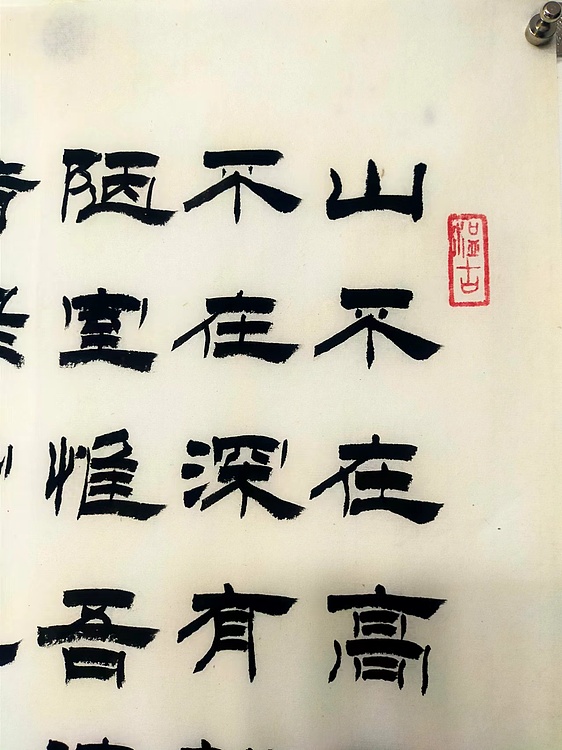 山不在高
不在深有
陋室惟吾